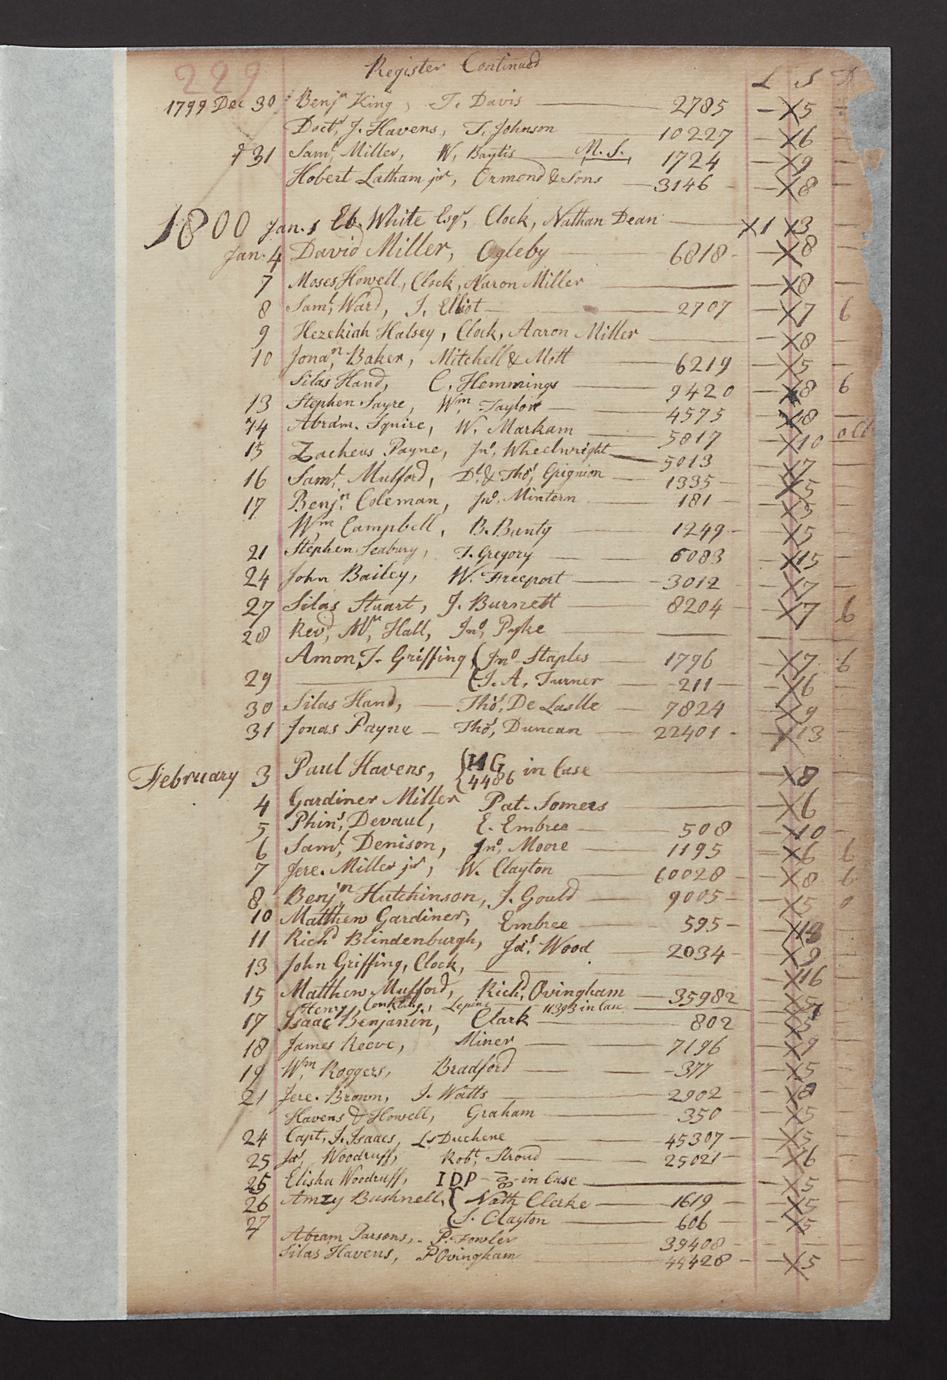 229
Register Continued
L S D
1799 Dec 30 Benjn King, T. Davis 2785 – X5
Doct. J. Havens, T. Johnson 10227 – X6
31 Saml. Miller, W. Baytis M. S. 1724 – X9
Hobert Latham jr, Ormond & Sons 3146 – X8
1800 Jan. 1 Eb. White Esqr, Clock, Nathan Dean X1 X3
Jan. 4 David Miller, Ogleby 6818 – X8
7 Moses Howell, Clock, Aaron Miller – X8
8 Saml. Ward, J. Elliot 2707 – X7 6
9 Hezekiah Halsey, Clock, Aaron Miller – X8
10 Jonan. Baker, Mitchell & Mott 6219 – X5
Silas Hand, C. Hemmings 9420 – X8 6
13 Stephen Sayre, Wm Taylor 4575 – X8
14 Abram. Squire, W. Markam 5817 – X10
15 Zacheus Payne, Jno. Wheelwright 5013 – X7
16 Saml. Mulford, Dl. & Thos. Grignion 1335 – X5
17 Benjn. Coleman, Jno. Mintern 181 – X5
Wm Campbell, B. Bunty 1249 – X5
21 Stephen Seabury, T. Gregory 6083 – X15
24 John Bailey, W. Freeport 3012 – X7
27 Silas Stuart, J. Burnett 8204 – X7 6
28 Revd. Mr. Hall, Jno. Pyke
Amon T. Griffing, { Jno. Staples 1796 – X7 6
29 { J. A. Turner 211 – X6
30 Silas Hand, Thos. De Laslle 7824 – X9
31 Jonas Payne – Thos. Duncan 22401 – X13
February 3 Paul Havens, { HG 4486 in Case X8
4 Gardiner Miller Pat. Somers X6
5 Phins. Devaul, E. Embree 508 – 10
6 Saml. Denison, Jno. Moore 1195 – X6 6
7 Jere. Miller jr, W. Clayton 60028 – X8 6
8 Benjn Hutchinson, J. Gould 9005 – X5 0
10 Matthew Gardiner, Embree 595 –
11 Richd Blindenburgh, Jas. Wood 2034 – X9
13 John Griffing, Clock, – X16
15 Matthew Mulford, Richd. Ovingham 35982
Henry Conkling, Lepine in Case
17 Isaac Benjamin, Clark 802 – X5
18 James Reeve, Miner 7196 – X9
19 Wm Roggers, Bradford 377 – X5
21 Jere. Brown, J. Watts 2902 – X8
Havens & Howell, Graham 350 – X5
24 Capt. J. Isaacs, Ls Duchene 45307 – X5
25 Jas. Woodruff, Robt. Stroud 25021 – X6
25 Elisha Woodruff, IDP in Case – X5
26 Amzy Bushnell, { Nath Clarke 1619 – X5
27 { J. Clayton 606 – X5
Abram Parsons, P. Fowler 39408 –
Silas Havens, P Ovingham 44428 – X5